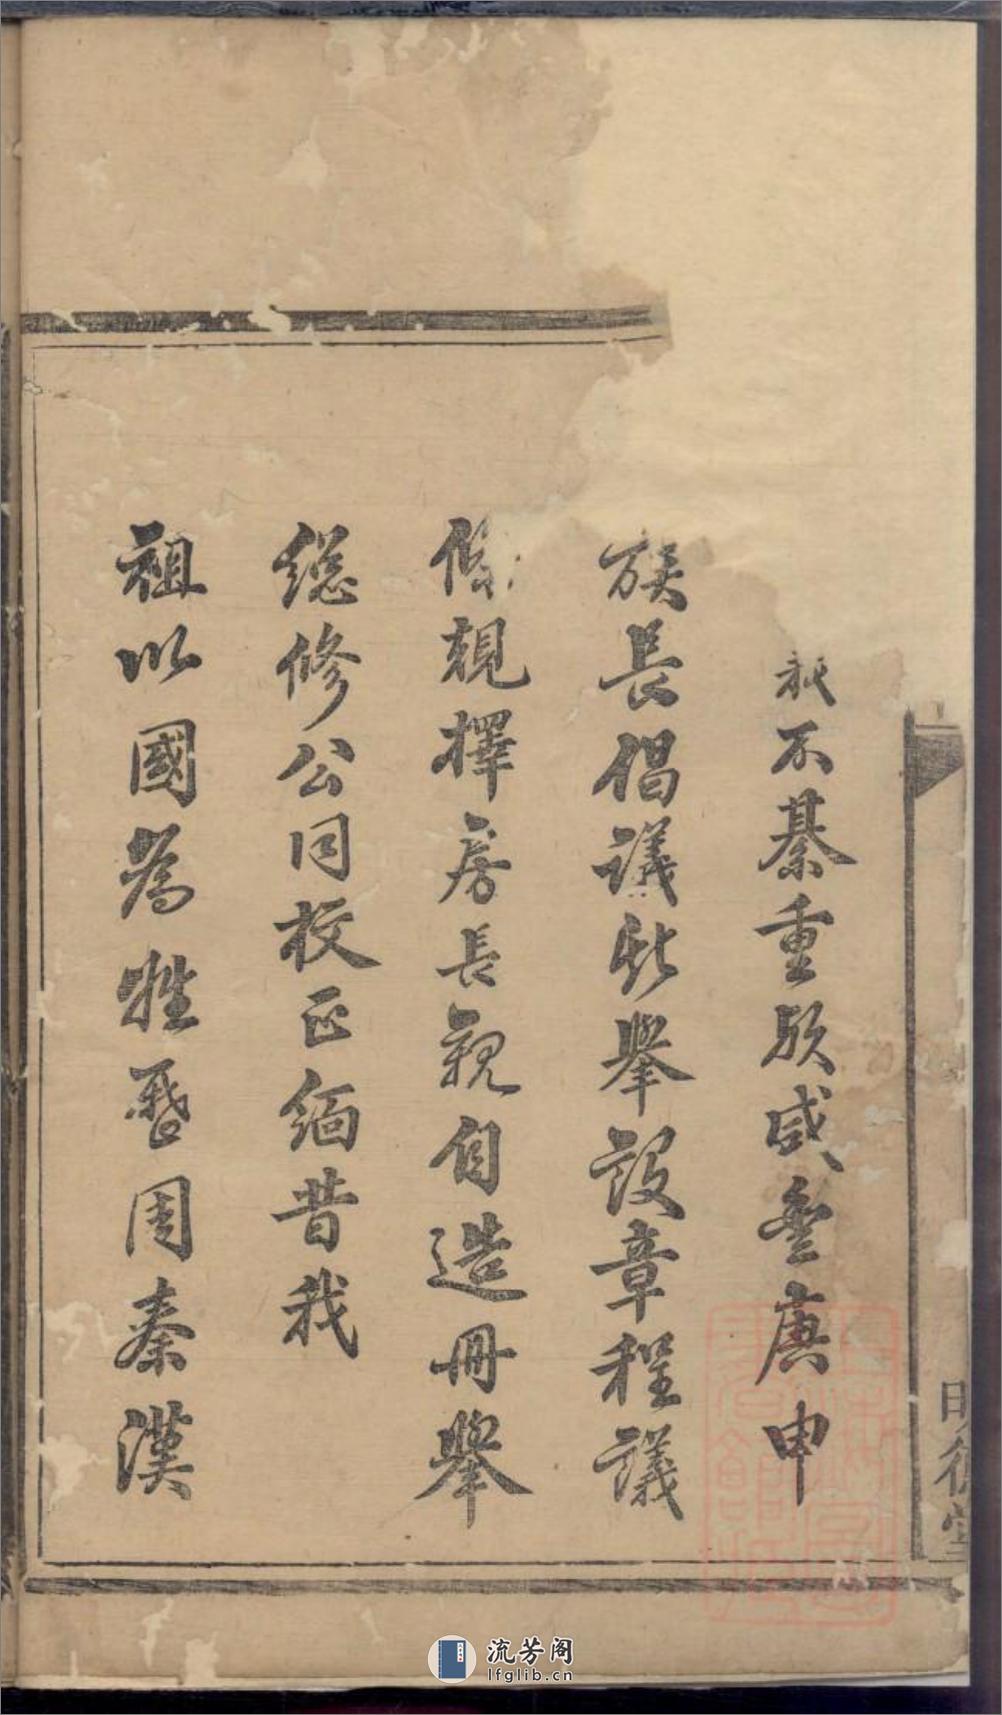 不綦重欤咸豐庚申
族長倡議斯舉設章程議
條規擇房長親自造冊舉
總修公同校正緬昔我
祖以國為姓歷周秦漢
流芳阁
lfglib.cn